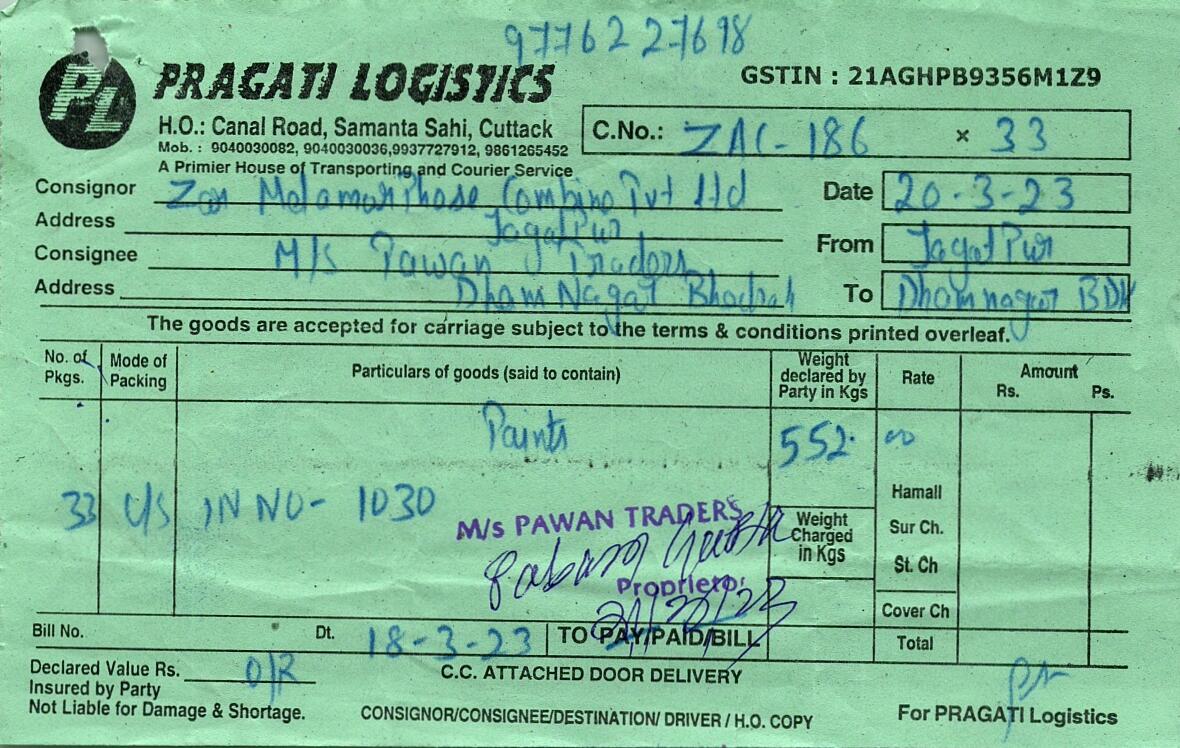 9776227698
PL PRAGATI LOGISTICS
GSTIN : 21AGHPB9356M1Z9
H.O.: Canal Road, Samanta Sahi, Cuttack
Mob. : 9040030082, 9040030036,9937727912, 9861265452
A Primier House of Transporting and Courier Service
C.No.: ZAC-186 × 33
Consignor Pvt Ltd
Date 20-3-23
Address JagatPur
From JagatPur
Consignee M/s Pawan Traders
Address DhamNagar Bhadrak
To Dhamnagar BDK
The goods are accepted for carriage subject to the terms & conditions printed overleaf.
No. of Pkgs. Mode of Packing Particulars of goods (said to contain) Weight declared by Party in Kgs Rate Amount Rs. Ps.
Paints 552.00
33 C/S IN NO- 1030
Hamall
M/s PAWAN TRADERS
Weight Charged in Kgs
Sur Ch.
St. Ch
Proprietor
Cover Ch
Bill No. Dt. 18-3-23 TO PAY/PAID/BILL Total
Declared Value Rs. O/R
C.C. ATTACHED DOOR DELIVERY
Insured by Party
Not Liable for Damage & Shortage.
CONSIGNOR/CONSIGNEE/DESTINATION/ DRIVER / H.O. COPY
For PRAGATI Logistics